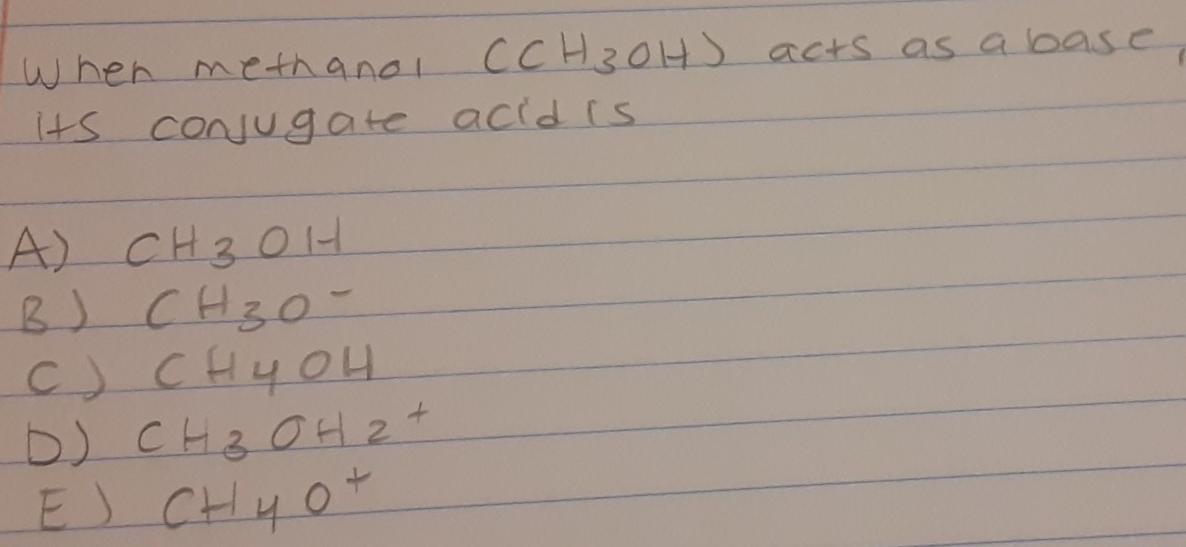 When methanol (CH3OH) acts as a base,
its conjugate acid is
A) CH3OH
B) CH3O-
C) CH4OH
D) CH3OH2+
E) CH4O+